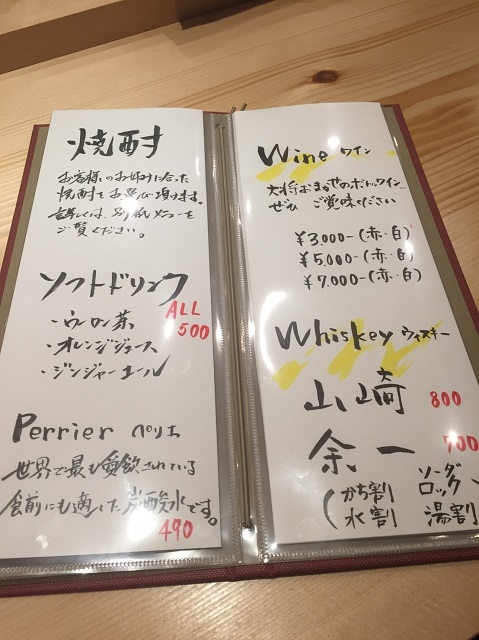 焼酎
お客様のお好みに合った
焼酎をお選び頂けます。
詳しくは、別紙メニューを
ご覧ください。
ソフトドリンク
ALL
500
・ウーロン茶
・オレンジジュース
・ジンジャーエール
Perrier ペリエ
世界で最も愛飲されている
食前にも適した炭酸水です。
490
Wine ワイン
大将おまかせのボトルワイン…
ぜひ ご賞味ください
¥3,000-(赤・白)
¥5,000-(赤・白)
¥7,000-(赤・白)
Whiskey ウィスキー
山崎 800
余一 700
(かち割 ロック ソーダ、
水割 湯割